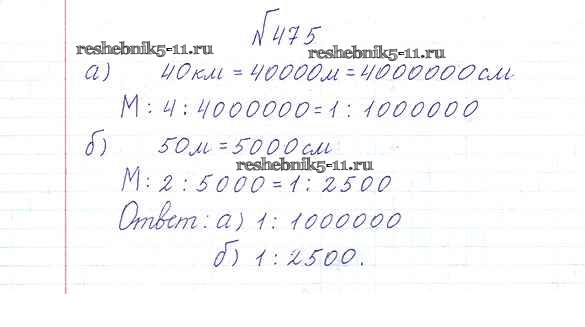 №475
reshebnik5-11.ru
reshebnik5-11.ru
а) 40км = 40000м = 4000000см
М: 4 : 4000000 = 1 : 1000000
б) 50м = 5000см
reshebnik5-11.ru
М: 2 : 5000 = 1 : 2500
Ответ: а) 1 : 1000000
б) 1 : 2500.